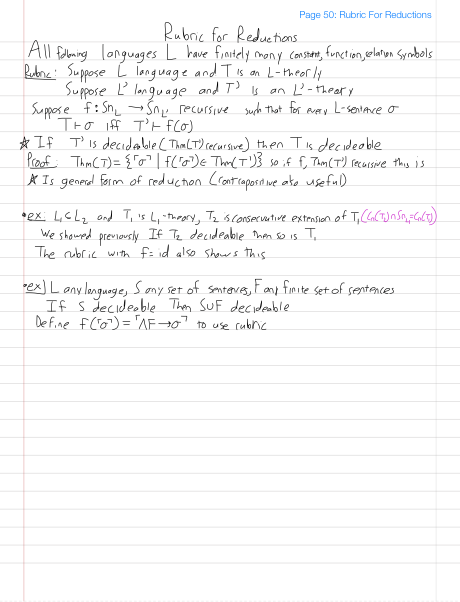 Page 50: Rubric For Reductions
Rubric for Reductions
All following languages L have finitely many constant, function, relation symbols
Rubric: Suppose L language and T is an L-theory
Suppose L' language and T' is an L'-theory
Suppose f: Sn_L → Sn_L' recursive such that for every L-sentence σ
T ⊢ σ iff T' ⊢ f(σ)
★ If T' is decidable (Thm(T') recursive) then T is decideable
Proof: Thm(T) = {⌜σ⌝ | f(⌜σ⌝) ∈ Thm(T')} so if f, Thm(T') recursive this is
★ Is general form of reduction (contrapositive also useful)
•ex: L₁ ⊂ L₂ and T₁ is L₁-theory, T₂ is conservative extension of T₁ (Cn(T₂) ∩ Sn_L₁ = Cn(T₁))
We showed previously If T₂ decideable then so is T₁
The rubric with f = id also shows this
•ex] L any language, S any set of sentences, F any finite set of sentences
If S decideable Then S∪F decideable
Define f(⌜σ⌝) = ⌜∧F → σ⌝ to use rubric